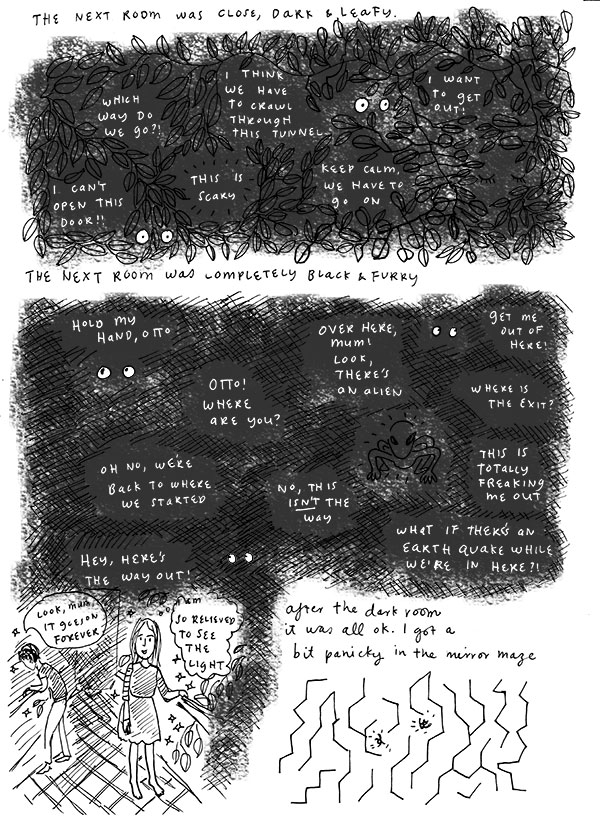 THE NEXT ROOM WAS CLOSE, DARK & LEAFY.
WHICH
WAY DO
WE GO?!
I THINK
WE HAVE
TO CRAWL
THROUGH
THIS TUNNEL
I WANT
TO GET
OUT!
I CAN'T
OPEN THIS
DOOR!!
THIS IS
SCARY
KEEP CALM,
WE HAVE TO
GO ON
THE NEXT ROOM WAS COMPLETELY BLACK & FURRY
HOLD MY
HAND, OTTO
OTTO!
WHERE
ARE YOU?
OVER HERE,
MUM!
LOOK,
THERE'S
AN ALIEN
GET ME
OUT OF
HERE!
WHERE IS
THE EXIT?
OH NO, WE'RE
BACK TO WHERE
WE STARTED
NO, THIS
ISN'T THE
WAY
THIS IS
TOTALLY
FREAKING
ME OUT
HEY, HERE'S
THE WAY OUT!
WHAT IF THERE'S AN
EARTH QUAKE WHILE
WE'RE IN HERE?!
LOOK, MUM
IT GOES ON
FOREVER
SO RELIEVED
TO SEE
THE
LIGHT
after the dark room
it was all ok. I got a
bit panicky in the mirror maze